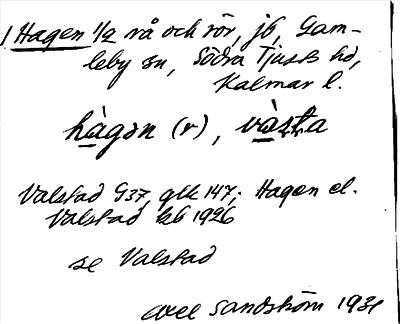 1 Hagen 1/2 rå och rör, jb, Gam-
leby sn, Södra Tjusts hd,
Kalmar l.
hàgən (r), vàsta
Valstad G37, gek 147; Hagen el.
Valstad kb 1926
se Valstad
Axel Sandström 1931